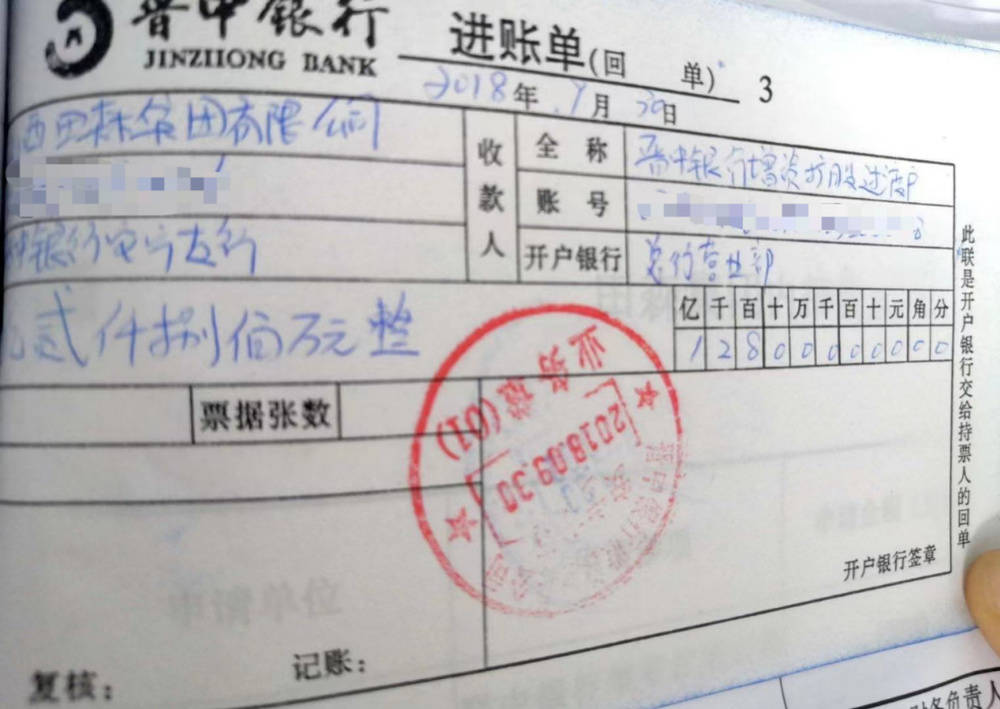 晋中银行
JINZHONG BANK
进账单(回 单) 3
2018年 9月 30日
西田森集团有限公司
收款人
全 称
晋中银行增资扩股过渡户
账 号
开户银行
总行营业部
银行 支行
贰仟捌佰万元整
亿千百十万千百十元角分
12800000000
票据张数
业务章(01)
2018.09.30
此联是开户银行交给持票人的回单
开户银行签章
复核:
记账:
财务负责人